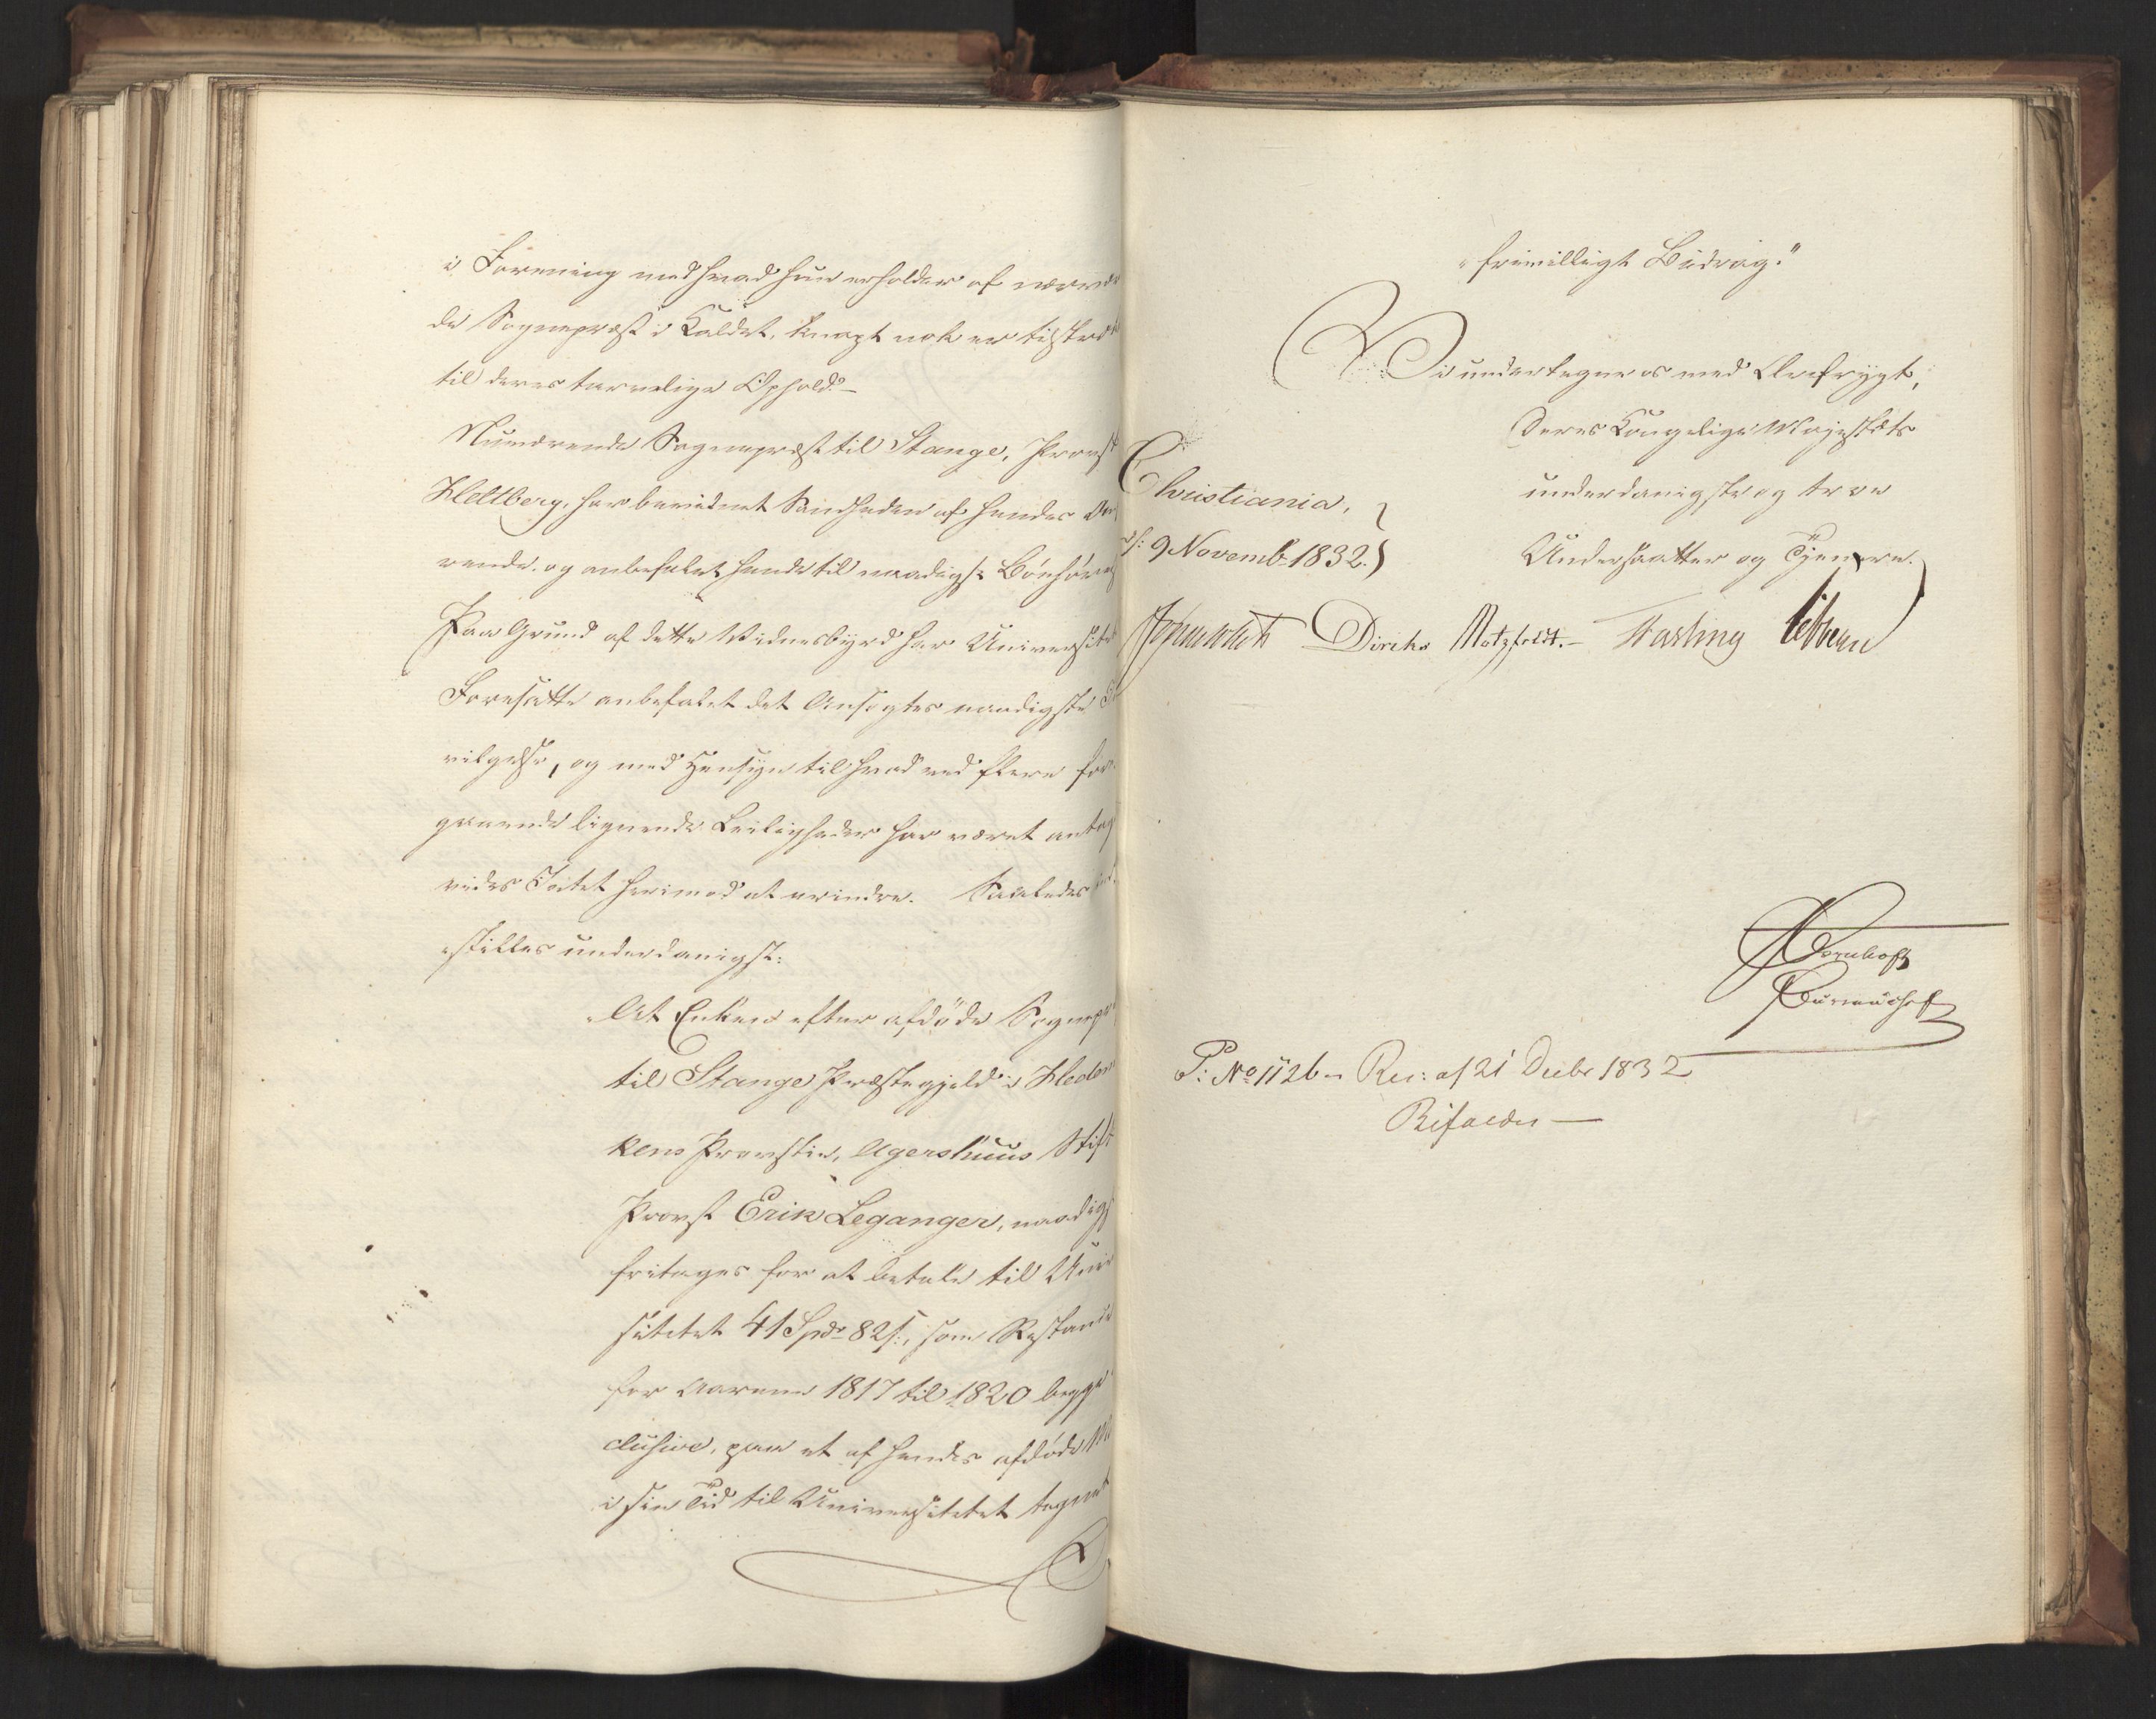 i Forening med hvad hun erholder af nærvæ
de Sognepræst i Kaldet, knapt nok er tilstræ
til deres tarvelige Ophold.–
Nuværende Sognepræst til Stange, Provst
Heltberg, har bevidnet Sandheden af hendes An
rende, og anbefalet hende til naadigst Bönhörel
Paa Grund af dette Vidnesbyrd har Universite
Foresatte anbefalet det Ansøgtes naadigste
vilgelse, og med Hensyn til hvad ved flere for
gaaende lignende Leiligheder har været antag
vides Intet herimod at erindre. Saaledes ind
stilles underdanigst:
„At Enken efter afdöde Sognepr
til Stange Præstegjeld i Hedem
kens Provstie, Agershuus Stift
Provst Erik Leganger, naadigs
fritages for at betale til Univ
sitetet 41 Spdr 82 s:, som Restance
for Aarene 1817 til 1820 begge
clusive, paa et af hendes afdöde M
i sin Tid til Universitetet tegnet
„frivilligt Bidrag.“
Vi undertegne os med Ærefrygt,
Deres Kongelige Majestæts
underdanigste og troe
Undersaatter og Tjenere.
Christiania,
9 Novemb. 1832.
Diriks Motzfeldt.– Fasting
P: No 1126 – Res: af 21 Decbr 1832
Bifaldes –